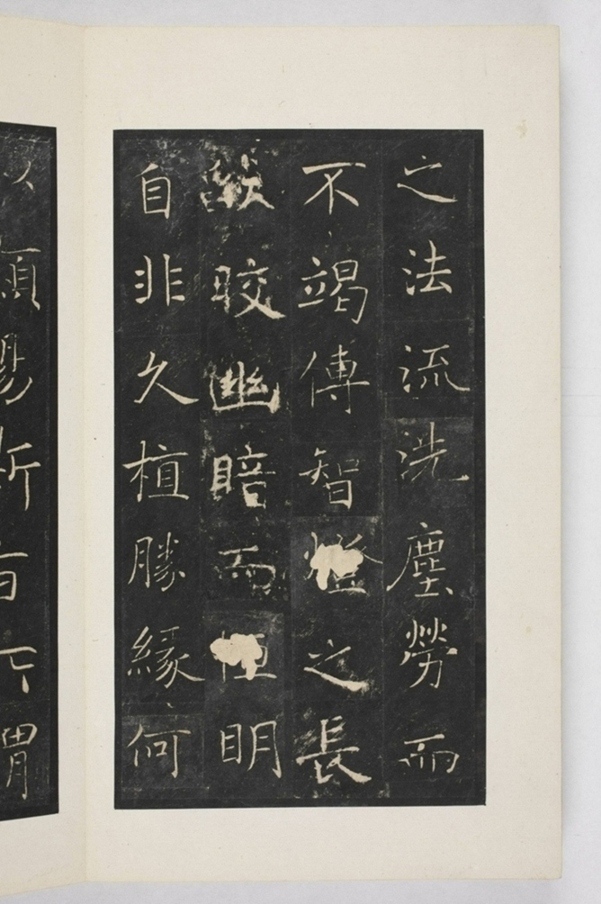 之法流洗塵勞而
不竭傳智燈之長
燄皎幽暗而恒明
自非久植勝緣何